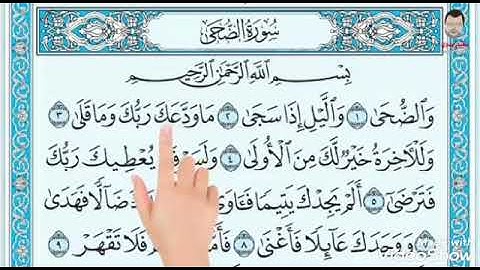 سُورَةُ الضُّحَىٰ
بِسْمِ اللَّهِ الرَّحْمَٰنِ الرَّحِيمِ
وَالضُّحَىٰ ١ وَاللَّيْلِ إِذَا سَجَىٰ ٢ مَا وَدَّعَكَ رَبُّكَ وَمَا قَلَىٰ ٣
وَلَلْآخِرَةُ خَيْرٌ لَّكَ مِنَ الْأُولَىٰ ٤ يُعْطِيكَ رَبُّكَ
فَتَرْضَىٰ ٥ أَلَمْ يَجِدْكَ يَتِيمًا ضَالًّا فَهَدَىٰ
وَوَجَدَكَ عَائِلًا فَأَغْنَىٰ ٨ فَلَا تَقْهَرْ ٩